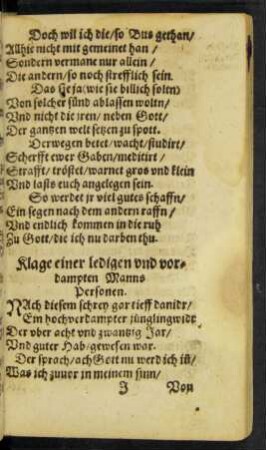 Doch wil ich die/so Bus gethan/
Allhie nicht mit gemeinet han/
Sondern vermane nur allein/
Die andern/so noch strefflich sein.
Das sie ja (wie sie billich solten)
Von solcher sünd ablassen woltn/
Vnd nicht die jren/neben Gott/
Der gantzen welt setzen zu spott.
Derwegen betet/wacht/studirt/
Scherfft ewer Gaben/meditirt/
Strafft/tröstet/warnet gros vnd klein
Vnd lasts euch angelegen sein.
So werdet jr viel gutes schaffn/
Ein segen nach dem andern raffn/
Vnd endlich kommen in die ruh
Zu Gott/die ich nu darben thu.
Klage einer ledigen vnd vor-
dampten Manns
Personen.
NAch diesem schrey gar tieff danidr/
Ein hochverdampter jünglingwidr
Der vber acht vnd zwantzig Jar/
Vnd guter Hab/gewesen war.
Der sprach/ach Gott nu werd ich iñ/
Was ich zuuor in meinem sinn/
J Von